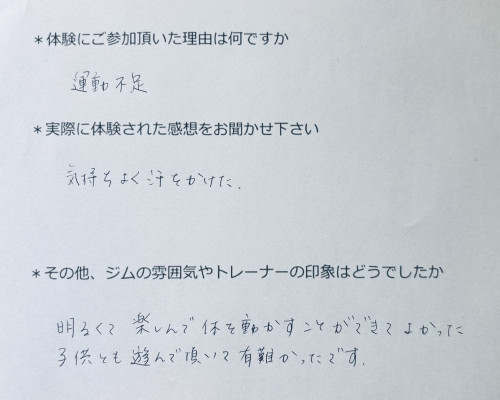 ＊体験にご参加頂いた理由は何ですか
運動不足
＊実際に体験された感想をお聞かせ下さい
気持ちよく汗をかけた.
＊その他、ジムの雰囲気やトレーナーの印象はどうでしたか
明るくて 楽しんで 体を動かすことができてよかった
子供とも 遊んで頂いて 有難かったです.